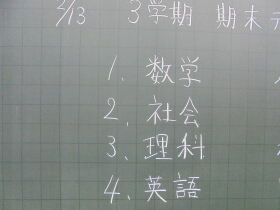 2/13 3学期 期末
1、数学
2、社会
3、理科
4、英語